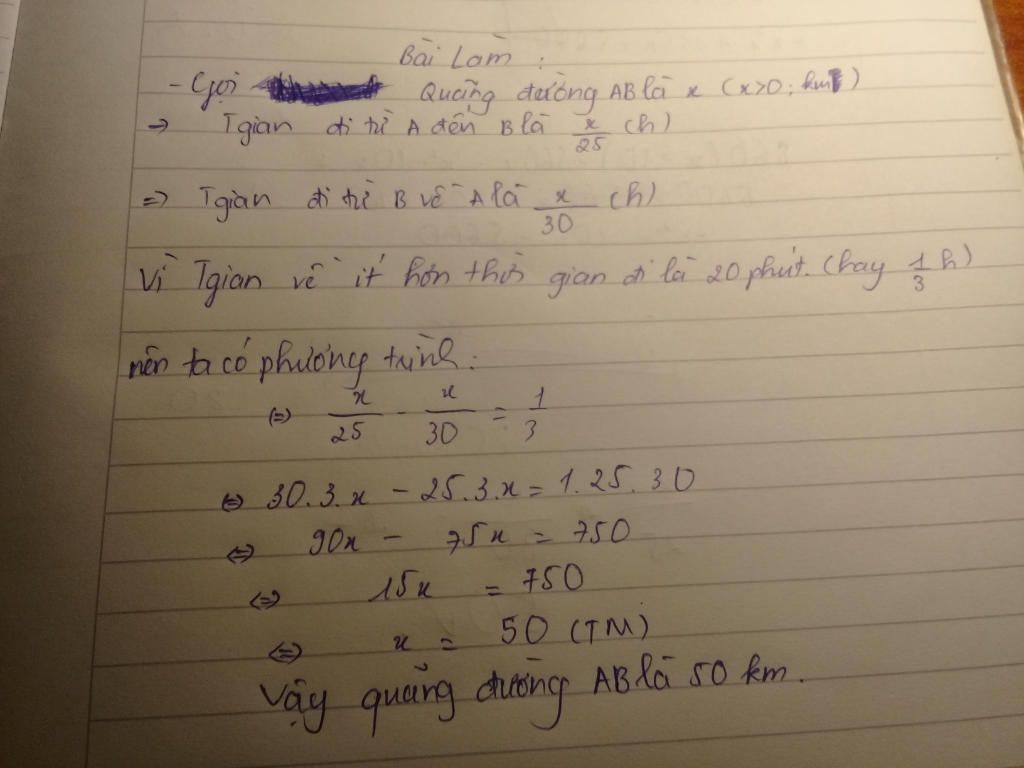 Bài Làm:
- Gọi Quãng đường AB là x (x>0; km)
=> Tgian đi từ A đến B là x/25 (h)
=> Tgian đi từ B về A là x/30 (h)
Vì Tgian về ít hơn thời gian đi là 20 phút. (hay 1/3 h)
nên ta có phương trình:
(=) x/25 - x/30 = 1/3
<=> 30.3.x - 25.3.x = 1.25.30
<=> 90x - 75x = 750
<=> 15x = 750
<=> x = 50 (TM)
Vậy quãng đường AB là 50 km.